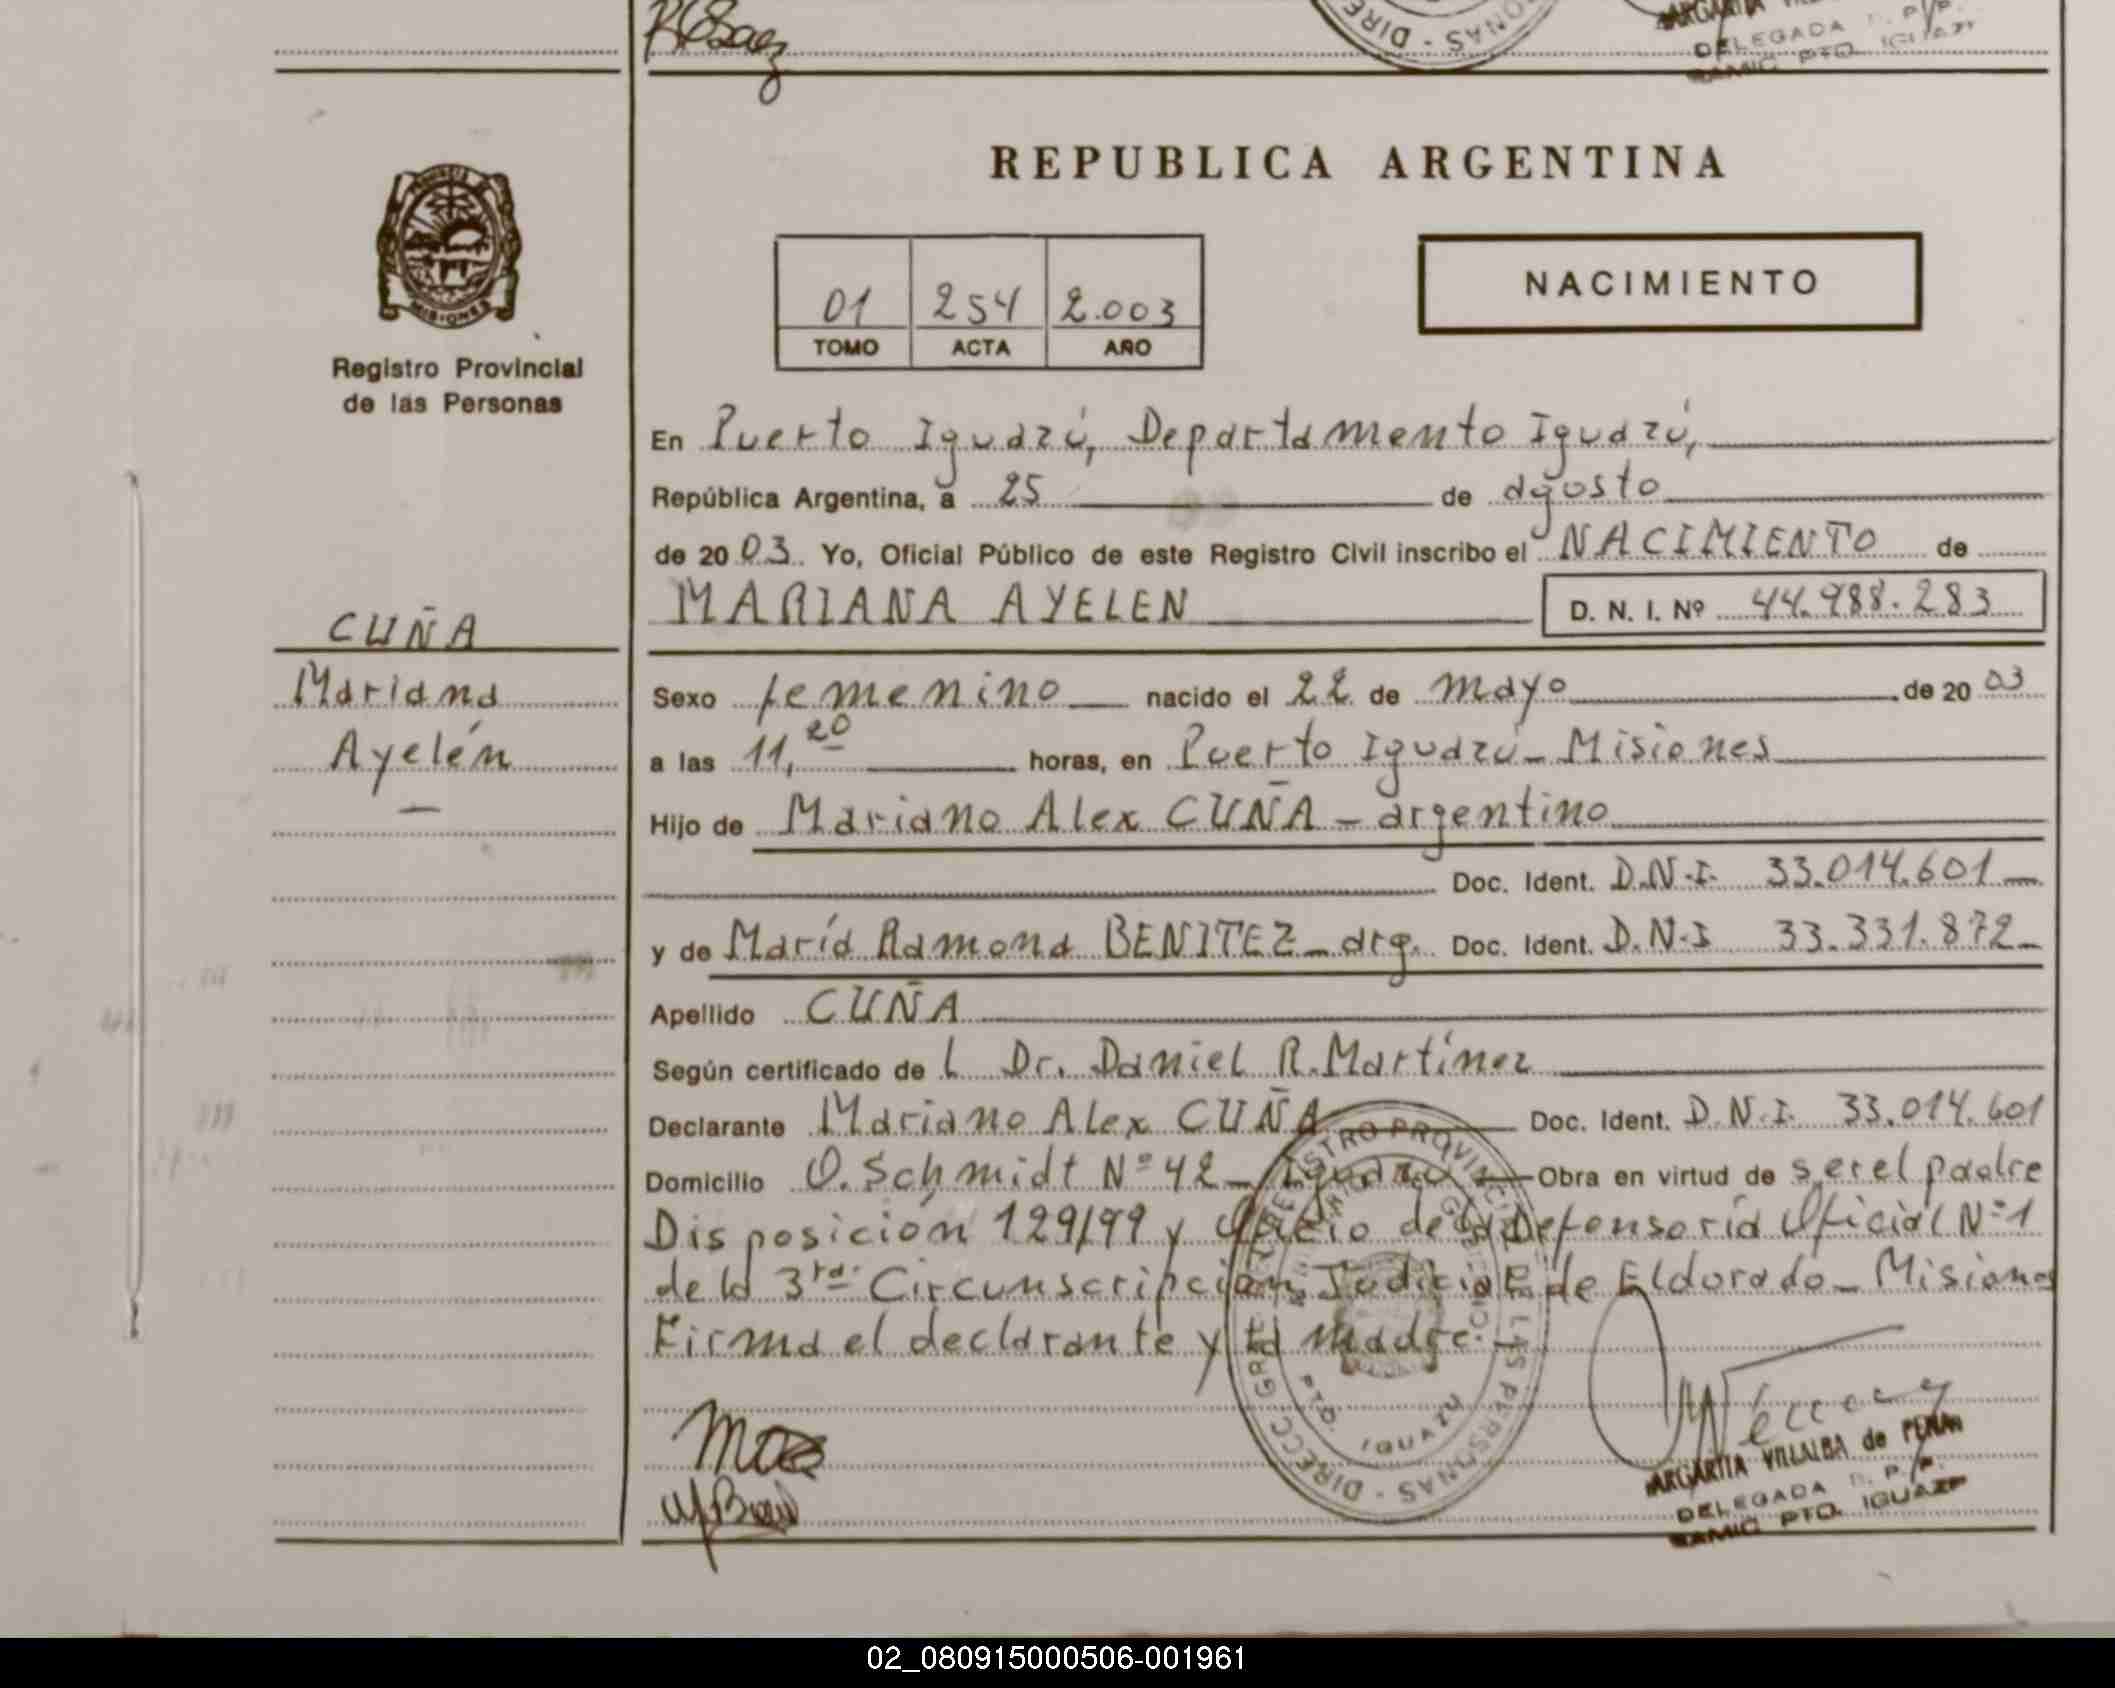 DIRE - SONAS
DELEGADA
SAMIC PTO. IGUAZU
REPUBLICA ARGENTINA
PROVINCIA DE
MISIONES
Registro Provincial
de las Personas
01 254 2.003
TOMO ACTA AÑO
NACIMIENTO
En Puerto Iguazú, Departamento Iguazú,
República Argentina, a 25 de agosto
de 2003. Yo, Oficial Público de este Registro Civil inscribo el NACIMIENTO de
MARIANA AYELEN D. N. I. Nº 44.988.283
CUÑA
Mariana
Ayelén
Sexo femenino nacido el 22 de mayo de 20 03
a las 11,20 horas, en Puerto Iguazú - Misiones
Hijo de Mariano Alex CUÑA - argentino
Doc. Ident. D.N.I. 33.014.601
y de María Ramona BENITEZ - arg. Doc. Ident. D.N.I 33.331.872
Apellido CUÑA
Según certificado de L Dr. Daniel R. Martínez
Declarante Mariano Alex CUÑA Doc. Ident. D.N.I. 33.014.601
Domicilio O. Schmidt Nº 42 - Iguazú - Obra en virtud de ser el padre
Disposición 129/99 y Oficio de la Defensoría Oficial Nº 1
de la 3ra. Circunscripción Judicial de Eldorado - Misiones
Firma el declarante y la madre. -
DIRECC. GRAL. REGISTRO PROVINCIAL DE LAS PERSONAS
MINISTERIO DE GOBIERNO
PTO. IGUAZU
ARGARITA VILLALBA de
DELEGADA R. P. P.
SAMIC PTO. IGUAZU
02_080915000506-001961